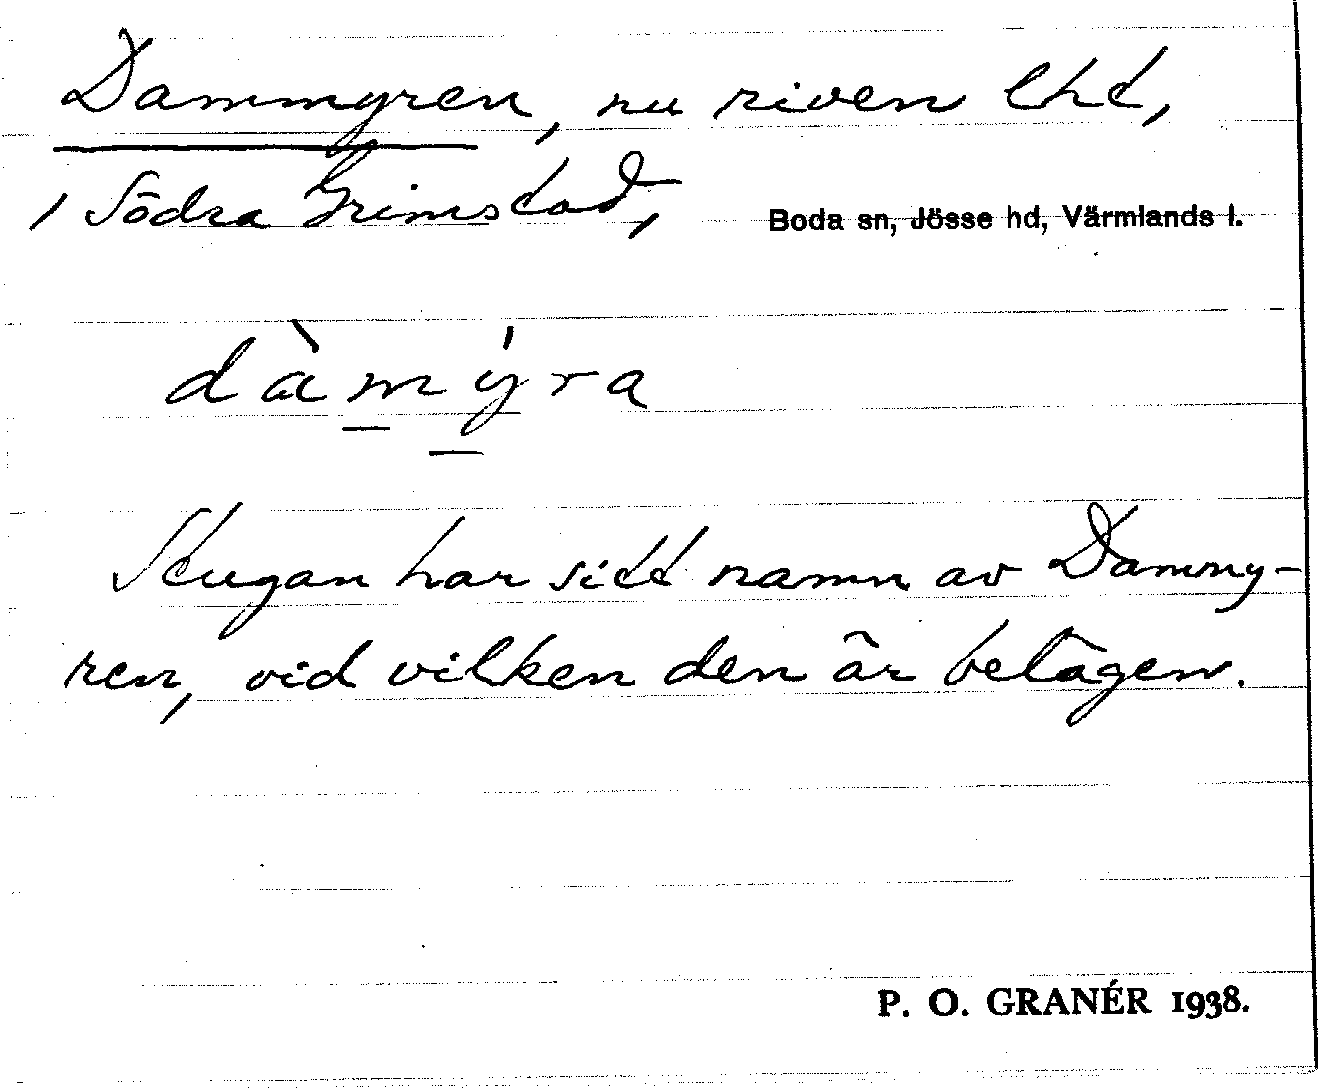 Dammyren, nu riven lht,
i Södra Grimstad, Boda sn, Jösse hd, Värmlands l.
dàmýra
Stugan har sitt namn av Dammy-
ren, vid vilken den är belägen.
P. O. GRANÉR 1938.